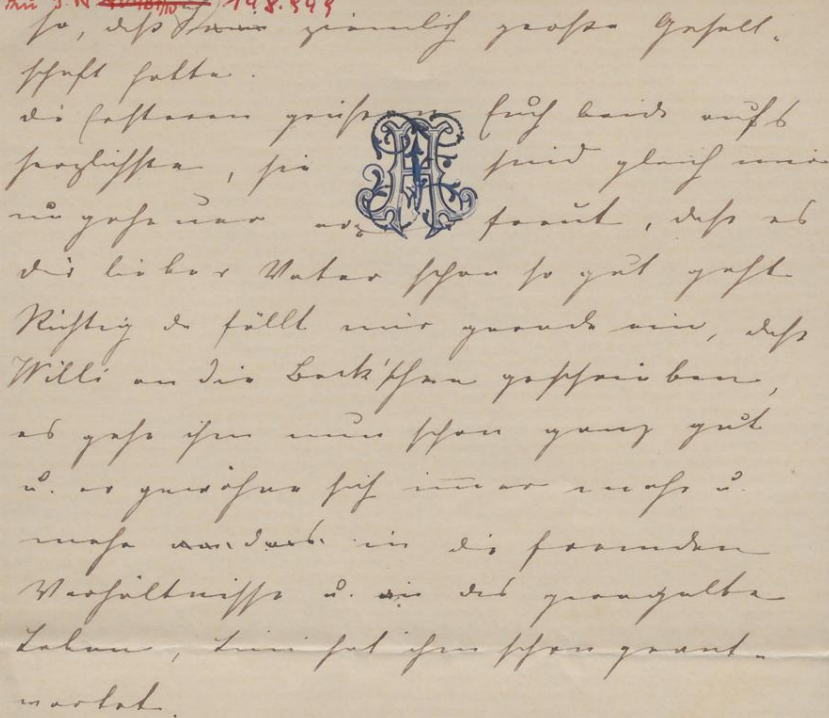 zu I.N. 198.949
so, daß ziemlich große Gesell-
schaft hatte.
die grüßen Euch beide aufs
herzlichste, sie sind gleich mir
ungeheuer erfreut, daß es
dir lieber Vater schon so gut geht
Richtig da fällt mir gerade ein, daß
Willi an die Beck'schen geschrieben,
es gehe ihm nun schon ganz gut
u. er gewöhne sich immer mehr u.
mehr in die fremden
Verhältnisse u. in das geregelte
Leben, hat ihm schon geant-
wortet.